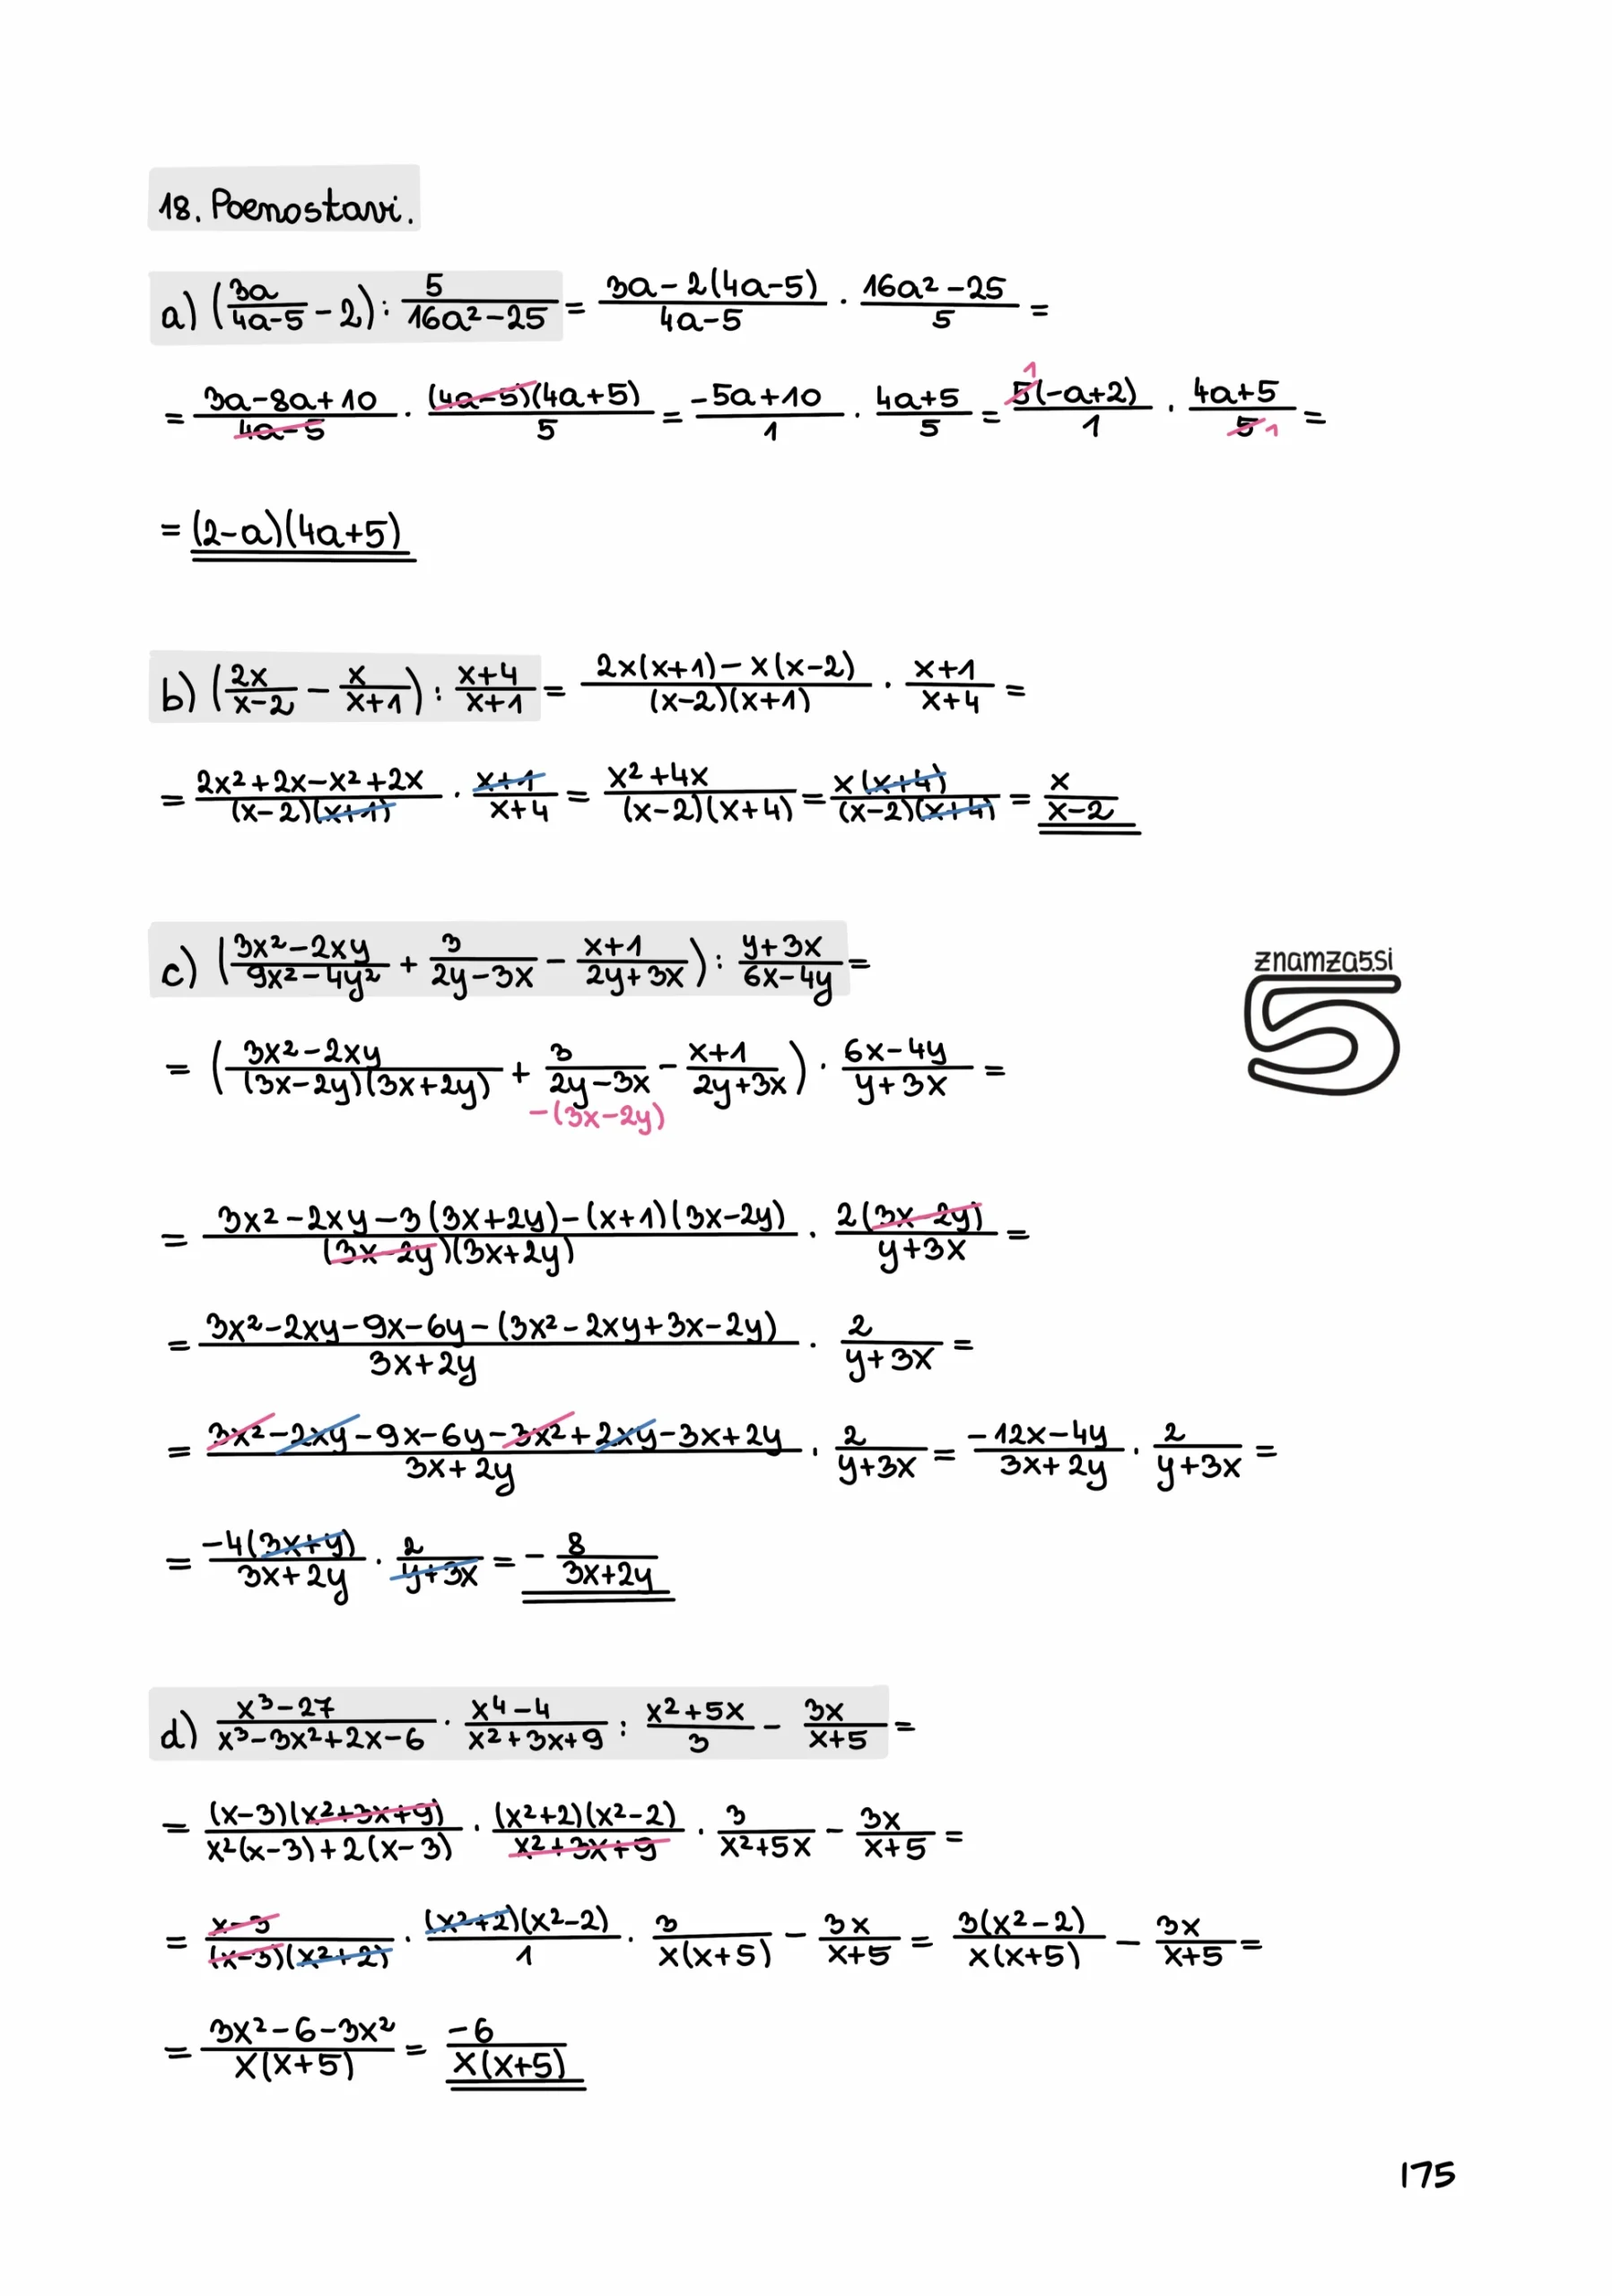 18. Poenostavi.
a) (3a/(4a-5) - 2) : 5/(16a²-25) = (3a-2(4a-5))/(4a-5) · (16a²-25)/5 =
= (3a-8a+10)/(4a-5) · ((4a-5)(4a+5))/5 = (-5a+10)/1 · (4a+5)/5 = 5(-a+2)/1 · (4a+5)/5 = 1 1
= (2-a)(4a+5)
b) (2x/(x-2) - x/(x+1)) : (x+4)/(x+1) = (2x(x+1)-x(x-2))/((x-2)(x+1)) · (x+1)/(x+4) =
= (2x²+2x-x²+2x)/((x-2)(x+1)) · (x+1)/(x+4) = (x²+4x)/((x-2)(x+4)) = x(x+4)/((x-2)(x+4)) = x/(x-2)
c) ((3x²-2xy)/(9x²-4y²) + 3/(2y-3x) - (x+1)/(2y+3x)) : (y+3x)/(6x-4y) =
znamza5.si
5
= ((3x²-2xy)/((3x-2y)(3x+2y)) + 3/(2y-3x) - (x+1)/(2y+3x)) · (6x-4y)/(y+3x) =
-(3x-2y)
= (3x²-2xy-3(3x+2y)-(x+1)(3x-2y))/((3x-2y)(3x+2y)) · 2(3x-2y)/(y+3x) =
= (3x²-2xy-9x-6y-(3x²-2xy+3x-2y))/(3x+2y) · 2/(y+3x) =
= (3x²-2xy-9x-6y-3x²+2xy-3x+2y)/(3x+2y) · 2/(y+3x) = (-12x-4y)/(3x+2y) · 2/(y+3x) =
= -4(3x+y)/(3x+2y) · 2/(y+3x) = - 8/(3x+2y)
d) (x³-27)/(x³-3x²+2x-6) · (x⁴-4)/(x²+3x+9) : (x²+5x)/3 - 3x/(x+5) =
= ((x-3)(x²+3x+9))/(x²(x-3)+2(x-3)) · ((x²+2)(x²-2))/(x²+3x+9) · 3/(x²+5x) - 3x/(x+5) =
= (x-3)/((x-3)(x²+2)) · ((x²+2)(x²-2))/1 · 3/(x(x+5)) - 3x/(x+5) = 3(x²-2)/(x(x+5)) - 3x/(x+5) =
= (3x²-6-3x²)/(x(x+5)) = -6/(x(x+5))
175